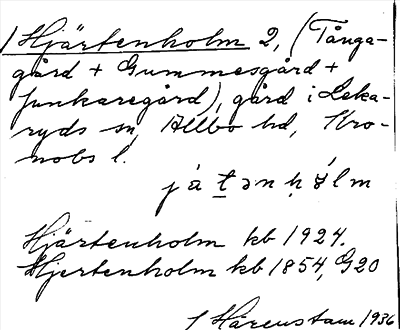 / Hjärtenholm 2, (Tånga-
gård + Gummesgård +
Junkaregård), gård i Leka-
ryds sn, Allbo hd, Kro-
nobs l.
Hjärtenholm kb 1924.
Hjertenholm kb 1854, G20
/ Härenstam 1936